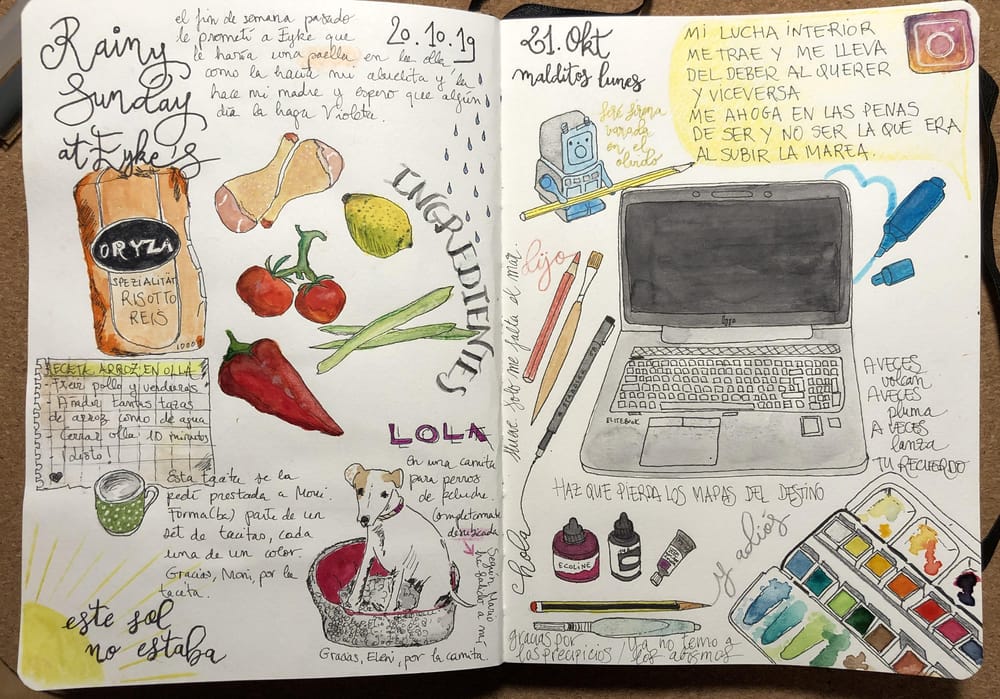 Rainy
Sunday
at Eyke's
el fin de semana pasado
le prometí a Eyke que
le haría una paella en la olla
como la hacía mi abuelita y la
hace mi madre y espero que algún
día la haga Violeta.
20.10.19
ORYZA
SPEZIALITÄT
RISOTTO
REIS
1000
INGREDIENTES
RECETA ARROZ EN OLLA
- Freír pollo y verduras
- Añadir tantas tazas
de arroz como de agua
- Cerrar olla 10 minutos
¡Listo!
Esta tacita se la
pedí prestada a Moni.
Forma(ba) parte de un
set de tacitas, cada
una de un color.
Gracias, Moni, por la
tacita.
este sol
no estaba
LOLA
en una camita
para perros
de peluche.
(completamente
desnucada
según Mario
me salió a mí
Gracias, Eleni, por la camita.
21. Okt
malditos lunes
MI LUCHA INTERIOR
ME TRAE Y ME LLEVA
DEL DEBER AL QUERER
Y VICEVERSA
ME AHOGA EN LAS PENAS
DE SER Y NO SER LA QUE ERA
AL SUBIR LA MAREA.
seré sirena
varada
en el
olvido
Lijo
solo me falta el mar
hola
ELITEBOOK
A VECES
volcán
A VECES
pluma
A VECES
lanza
TU RECUERDO
HAZ QUE PIERDA LOS MAPAS DEL DESTINO
y adiós
ECOLINE
gracias por
los precipicios / Ya no temo a
los abismos